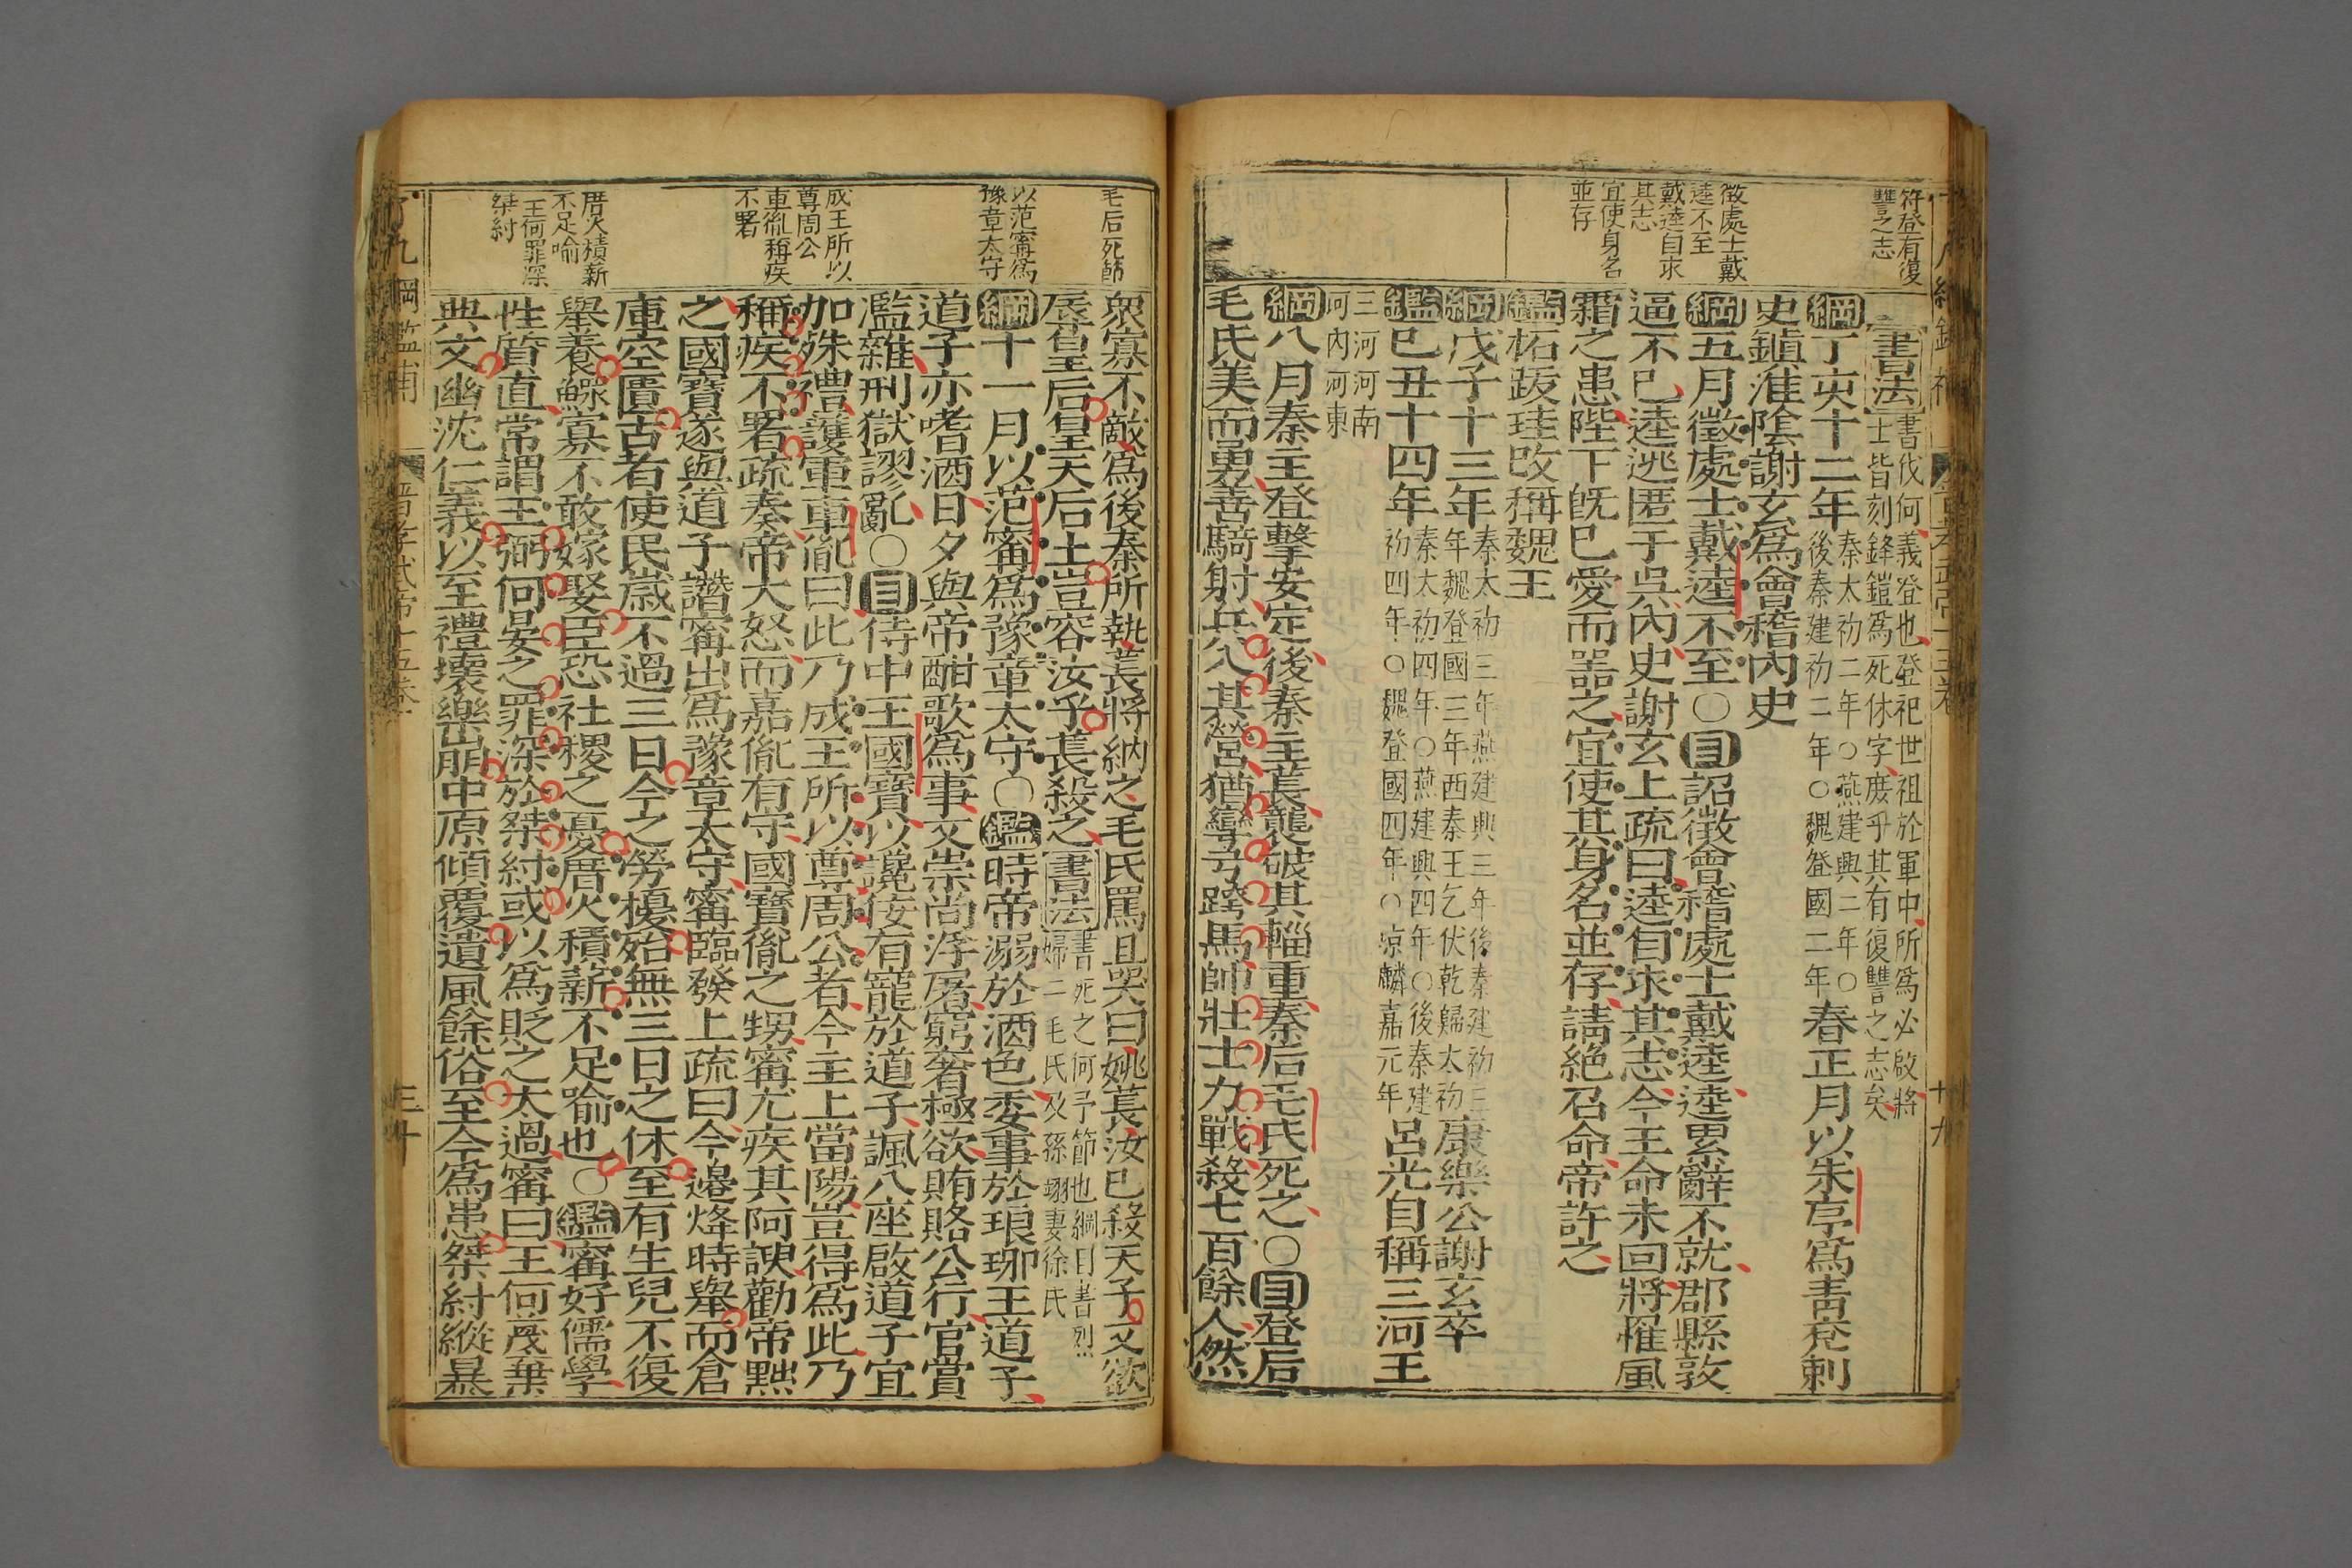 符登有復
讐之志
徵處士戴
逵不至
戴逵自求
其志
宜使身名
並存
書法
書伐何義登也登祀世祖於軍中所爲必啟將
士皆刻鋒鎧爲死休字庻乎其有復讐之志矣
綱丁亥十二年
秦太初二年○燕建興二年○
後秦建初二年○魏登國二年
春正月以朱序爲青兗刺
史鎮淮陰謝玄爲會稽內史
綱五月徵處士戴逵不至○目詔徵會稽處士戴逵逵累辭不就郡縣敦
逼不已逵逃匿于吳內史謝玄上疏曰逵自求其志今王命未回將罹風
霜之患陛下旣已愛而器之宜使其身名並存請絕召命帝許之
鑑拓跋珪改稱魏王
綱戊子十三年
秦太初三年燕建興三年後秦建初三
年魏登國三年西秦王乞伏乾歸太初
康樂公謝玄卒
鑑己丑十四年
秦太初四年○燕建興四年○後秦建
初四年○魏登國四年○涼麟嘉元年
呂光自稱三河王
三河河南
河內河東
綱八月秦主登擊安定後秦主萇襲破其輜重秦后毛氏死之○目登后
毛氏美而勇善騎射兵入其營猶彎弓跨馬帥壯士力戰殺七百餘人然
毛后死節
以范甯爲
豫章太守
成王所以
尊周公
車胤稱疾
不署
厝火積薪
不足喻
王何罪深
桀紂
衆寡不敵爲後秦所執萇將納之毛氏罵且哭曰姚萇汝已殺天子又欲
辱皇后皇天后土豈容汝乎萇殺之
書法
書死之何予節也綱目書烈
婦二毛氏及孫翊妻徐氏
綱十一月以范甯爲豫章太守○鑑時帝溺於酒色委事於琅琊王道子
道子亦嗜酒日夕與帝酣歌爲事又崇尚浮屠窮奢極欲賄賂公行官賞
濫雜刑獄謬亂○目侍中王國寶以讒佞有寵於道子諷八座啟道子宜
加殊禮護軍車胤曰此乃成王所以尊周公者今主上當陽豈得爲此乃
稱疾不署疏奏帝大怒而嘉胤有守國寶甯之甥甯尤疾其阿諛勸帝黜
之國寶遂與道子譖甯出爲豫章太守甯臨發上疏曰今邊烽時舉而倉
庫空匱古者使民歲不過三日今之勞擾殆無三日之休至有生兒不復
舉養鰥寡不敢嫁娶臣恐社稷之憂厝火積薪不足喻也○鑑甯好儒學
性質直常謂王弼何晏之罪深於桀紂或以爲貶之太過甯曰王何蔑棄
典文幽沈仁義以至禮壞樂崩中原傾覆遺風餘俗至今爲患桀紂縱暴
綱鑑補
晋孝武帝十五卷
三十